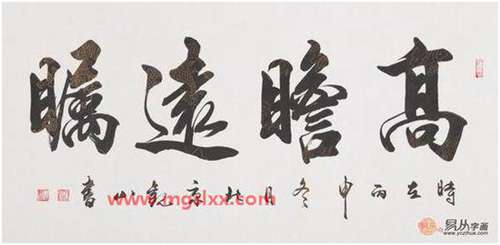 髙瞻遠矚
時在丙申冬月北京山書
www.mgslxx.com
易从字画
www.yczihua.com